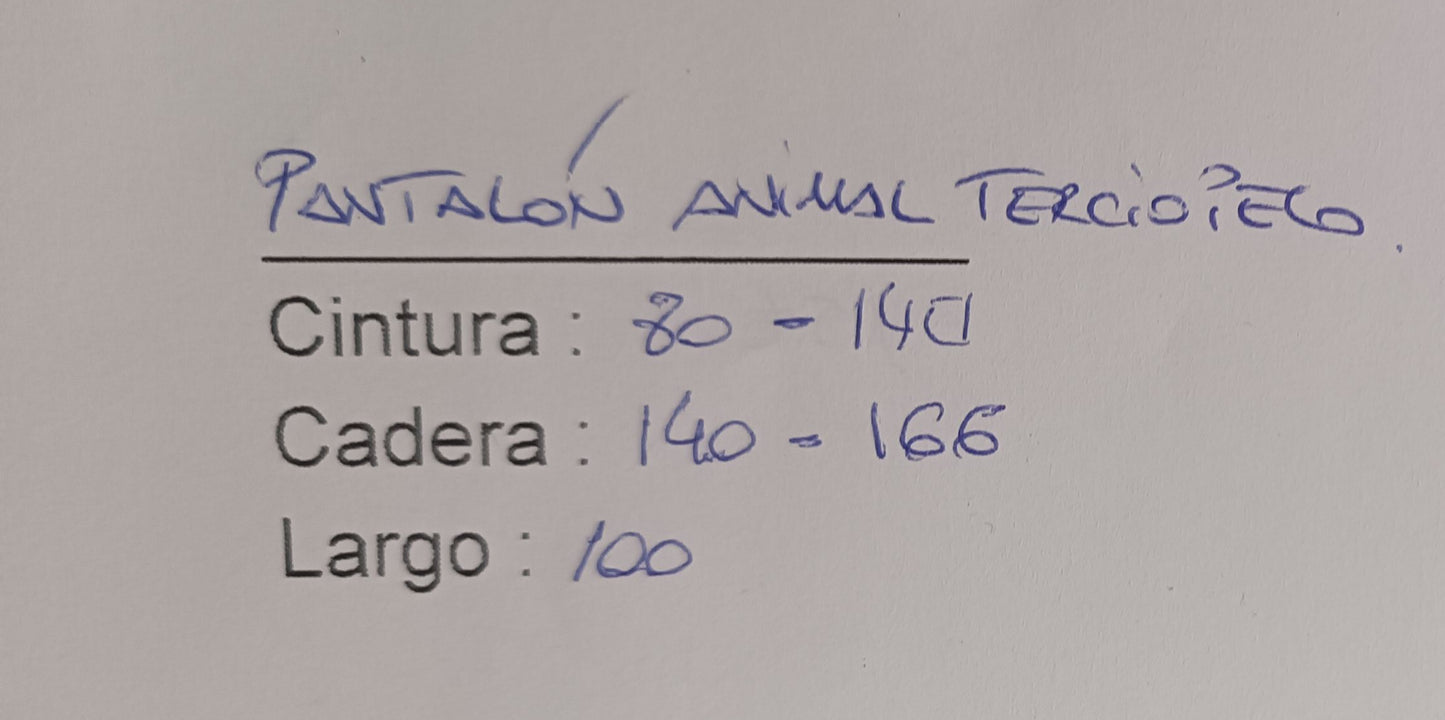 PANTALÓN ANIMAL TERCIOPELO.
Cintura : 80 - 140
Cadera : 140 - 166
Largo : 100